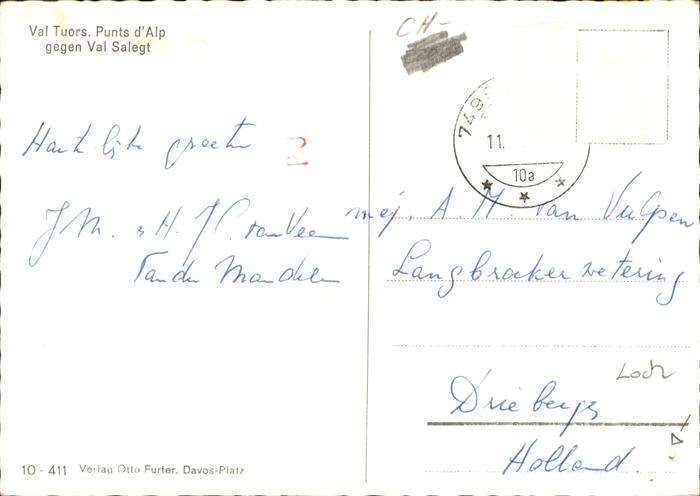 Val Tuors. Punts d'Alp
gegen Val Salegt
Hartelijke groeten
J.M. & H. J.C. van Veen
van der Mandele
10 - 411 Verlag Otto Furter, Davos-Platz
CH-
749
11.
10a
mej. A. M. van Vulpen
Langbroeker wetering
Loch
Driebergen
Holland.